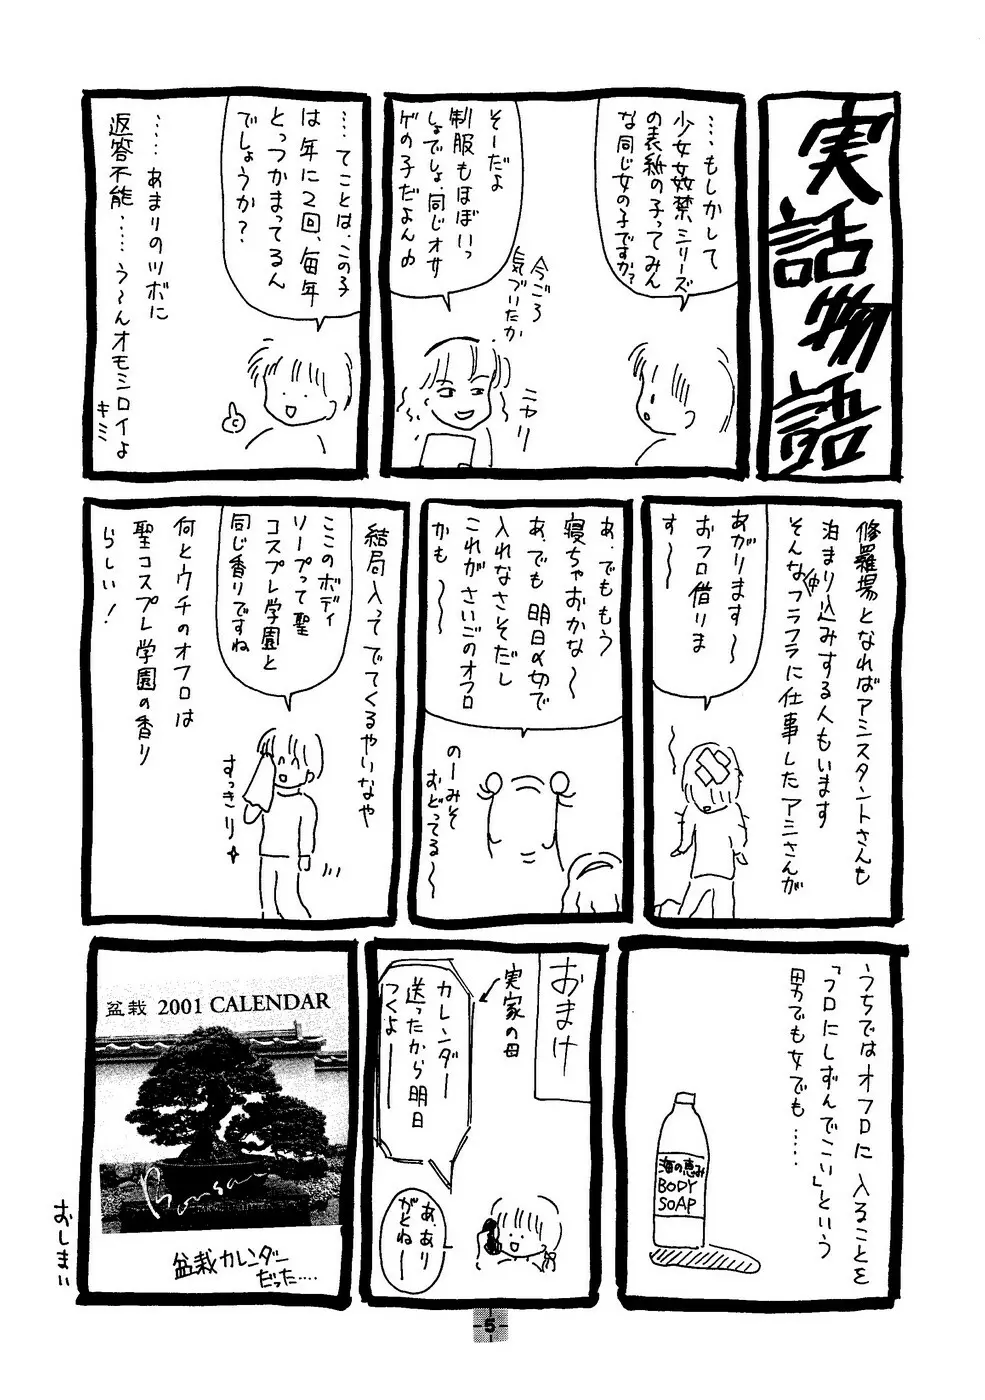 実話物語
‥‥もしかして
少女姦禁シリーズ
の表紙の子ってみん
な同じ女の子ですか?
今ごろ
気づいたか
ニヤリ
そーだよ
制服もほぼいっ
しょでしょ、同じオサ
ゲの子だよん♪
‥‥てことは、この子
は年に2回、毎年
とっつかまってるん
でしょうか?
‥‥あまりのツボに
返答不能‥‥う〜んオモシロイよ
キミ
修羅場となればアシスタントさんも
泊まり込みする人もいます
そんな中フラフラに仕事したアシさんが
あがります〜
おフロ借りま
す〜
あ、でももう
寝ちゃおかな〜
あ、でも明日〆切で
入れなさそだし
これがさいごのオフロ
かも〜
のーみそ
おどってる〜
結局入ってでてくるやいなや
ここのボディ
ソープって聖
コスプレ学園と
同じ香りですね
すっきり
何とウチのオフロは
聖コスプレ学園の香り
らしい!
うちではオフロに入ることを
「フロにしずんでこい」という
男でも女でも‥‥
海の恵み
BODY
SOAP
おまけ
実家の母
カレンダー
送ったから明日
つくよ──
あ、あり
がとねー
盆栽 2001 CALENDAR
Bonsai
盆栽カレンダー
だった‥‥
おしまい
5